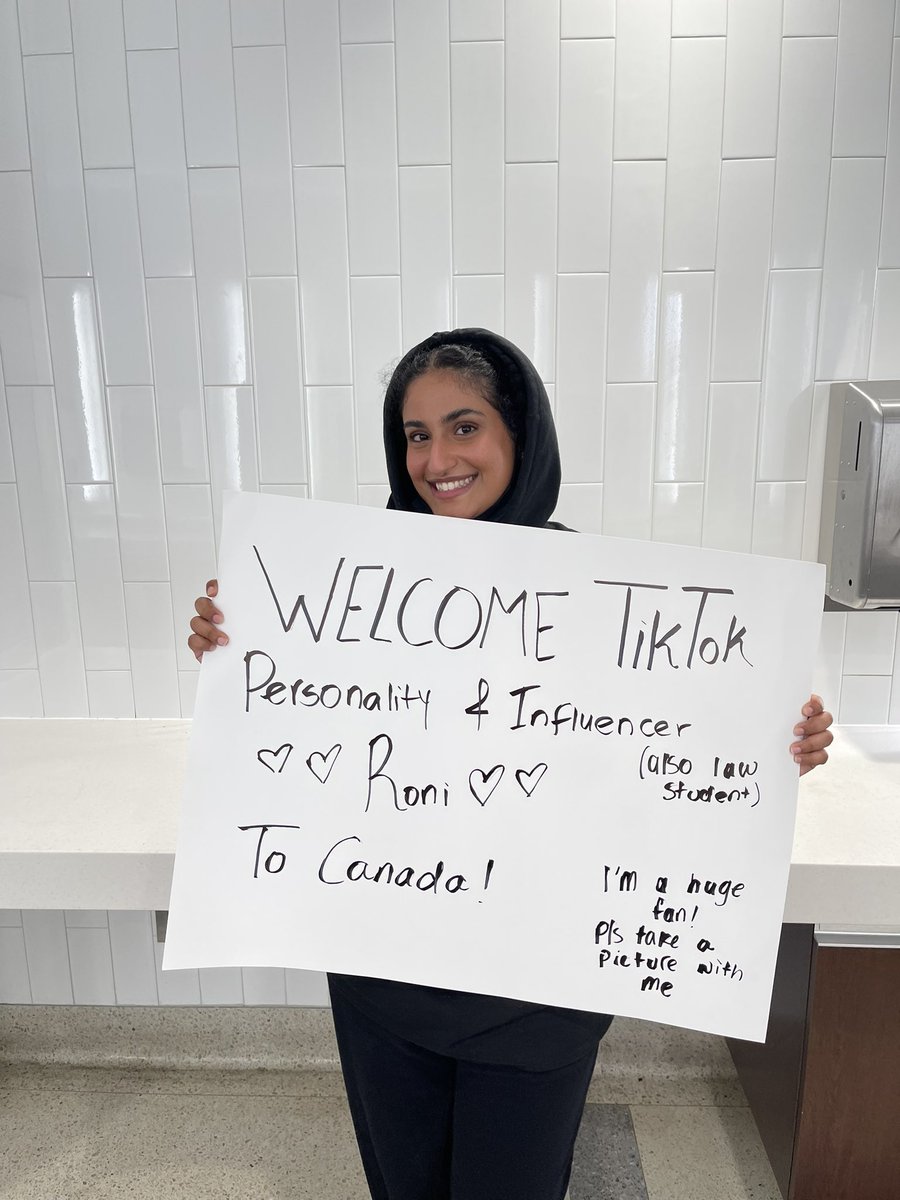 WELCOME TikTok
Personality & Influencer
Roni
(also law
student)
To Canada!
I'm a huge
fan!
Pls take a
picture with
me